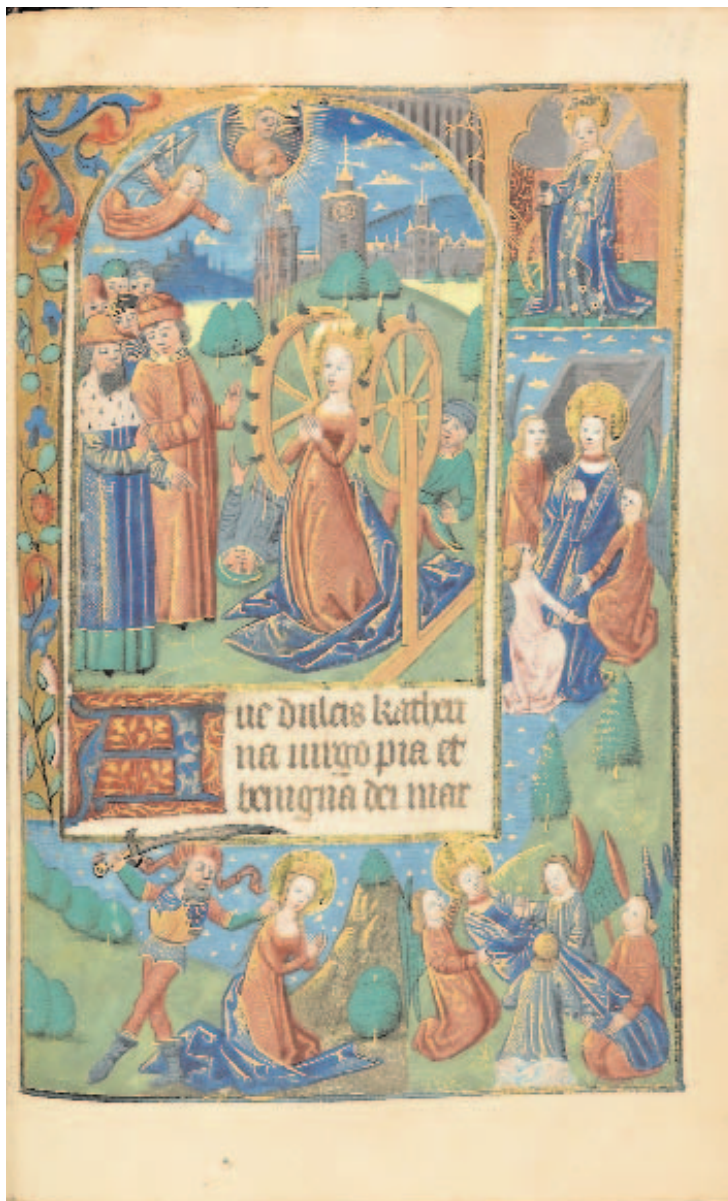 Aue dulcis kather
na uirgo pia et
benigna dei mar